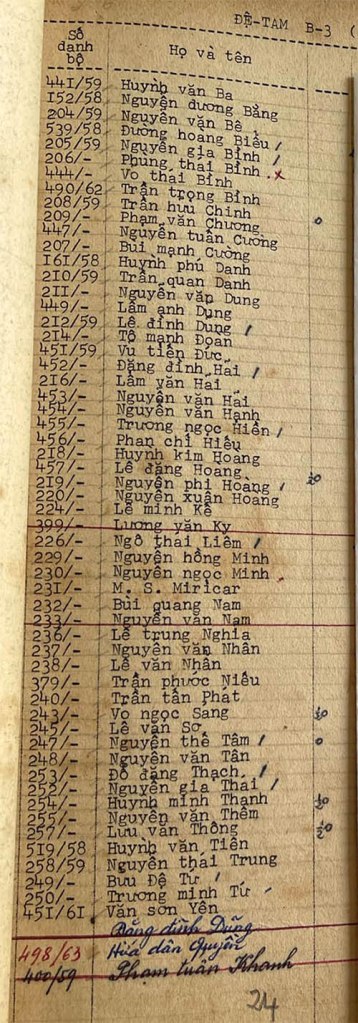 ĐỆ-TAM B-3 (
Số danh bộ Họ và tên
441/59 Huynh văn Ba
152/58 Nguyễn dương Bằng
204/59 Nguyễn văn Bê
539/58 Đương hoàng Biêu /
205/59 Nguyễn gia Bỉnh /
206/- Phùng thai Bỉnh x
444/- Vo thai Bỉnh
490/62 Trần trọng Bỉnh
208/59 Trần hưu Chinh
209/- Phạm văn Chương o
447/- Nguyễn tuân Cương
207/- Bui mạnh Cương
161/58 Huynh phu Danh
210/59 Trần quan Danh
211/- Nguyễn văn Dung
449/- Lâm anh Dung
212/59 Lê đình Dung /
214/- Tô mạnh Đoan
451/59 Vu tiên Đưc
452/- Đăng đình Hai /
216/- Lâm văn Hai
453/- Nguyễn văn Hai
454/- Nguyễn văn Hạnh
455/- Trương ngoc Hiên /
456/- Phan chi Hiêu
218/- Huynh kim Hoang
457/- Lê đăng Hoang
219/- Nguyễn phi Hoàng /
220/- Nguyễn xuân Hoàng
224/- Lê minh Kê
399/- Lương văn Ky
226/- Ngô thai Liêm /
229/- Nguyễn hông Minh
230/- Nguyễn ngọc Minh
231/- M. S. Miricar
232/- Bui quang Nam
233/- Nguyễn văn Nam
236/- Lê trung Nghia
237/- Nguyễn văn Nhân
238/- Lê văn Nhân
379/- Trần phươc Niêu
240/- Trần tân Phat
243/- Vo ngọc Sang
245/- Lê văn Sơ
247/- Nguyễn thê Tâm / o
248/- Nguyễn văn Tân
253/- Đô đăng Thạch /
252/- Nguyễn gia Thai /
254/- Huynh minh Thanh
255/- Nguyễn văn Thêm
257/- Lưu văn Thông
519/58 Huynh văn Tiên
258/59 Nguyễn thai Trung
249/- Bưu Đệ Tư /
250/- Trương minh Tư
451/61 Văn sơn Yên
Đặng đình Dũng
498/63 Hứa dân Quyền
400/59 Phạm tuân Khanh
24